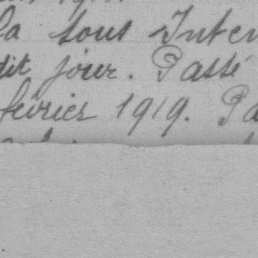 la sous Inten
dit jour. Passé
février 1919. Pa